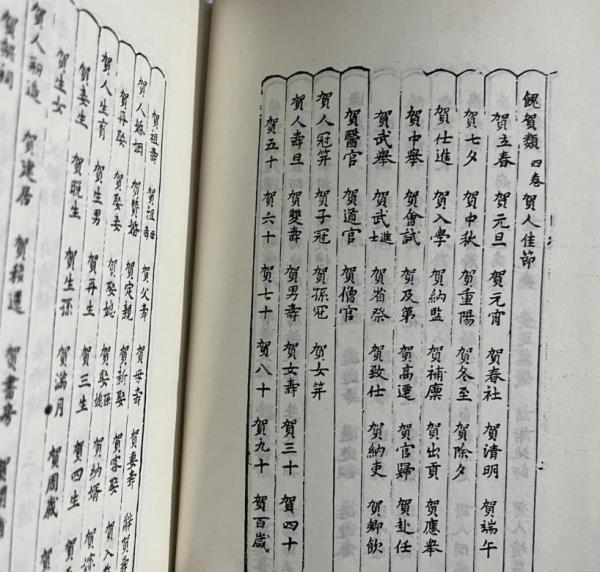 餽賀類 四卷 賀人佳節
賀立春 賀元旦 賀元宵 賀春社 賀清明 賀端午
賀七夕 賀中秋 賀重陽 賀冬至 賀除夕
賀仕進 賀入學 賀納監 賀補廩 賀出貢 賀應舉
賀中舉 賀會試 賀及第 賀高遷 賀官歸 賀赴任
賀武舉 賀武進士 賀省祭 賀致仕 賀納吏 賀鄉飲
賀醫官 賀道官 賀僧官
賀人冠笄 賀子冠 賀孫冠 賀女笄
賀人壽旦 賀雙壽 賀男壽 賀女壽 賀三十 賀四十
賀五十 賀六十 賀七十 賀八十 賀九十 賀百歲
賀祖壽 賀祖母 賀父壽 賀母壽 賀妻壽
賀人婚姻 賀贅婚 賀定親 賀新娶 賀客娶
賀再娶 賀娶妾 賀娶媳 賀娶孫媳 賀納婿 賀入
賀人生育 賀生男 賀再生 賀三生 賀四生
賀妻生 賀晚生 賀生孫 賀滿月 賀周歲
賀生女
賀建居 賀移遷 賀書房